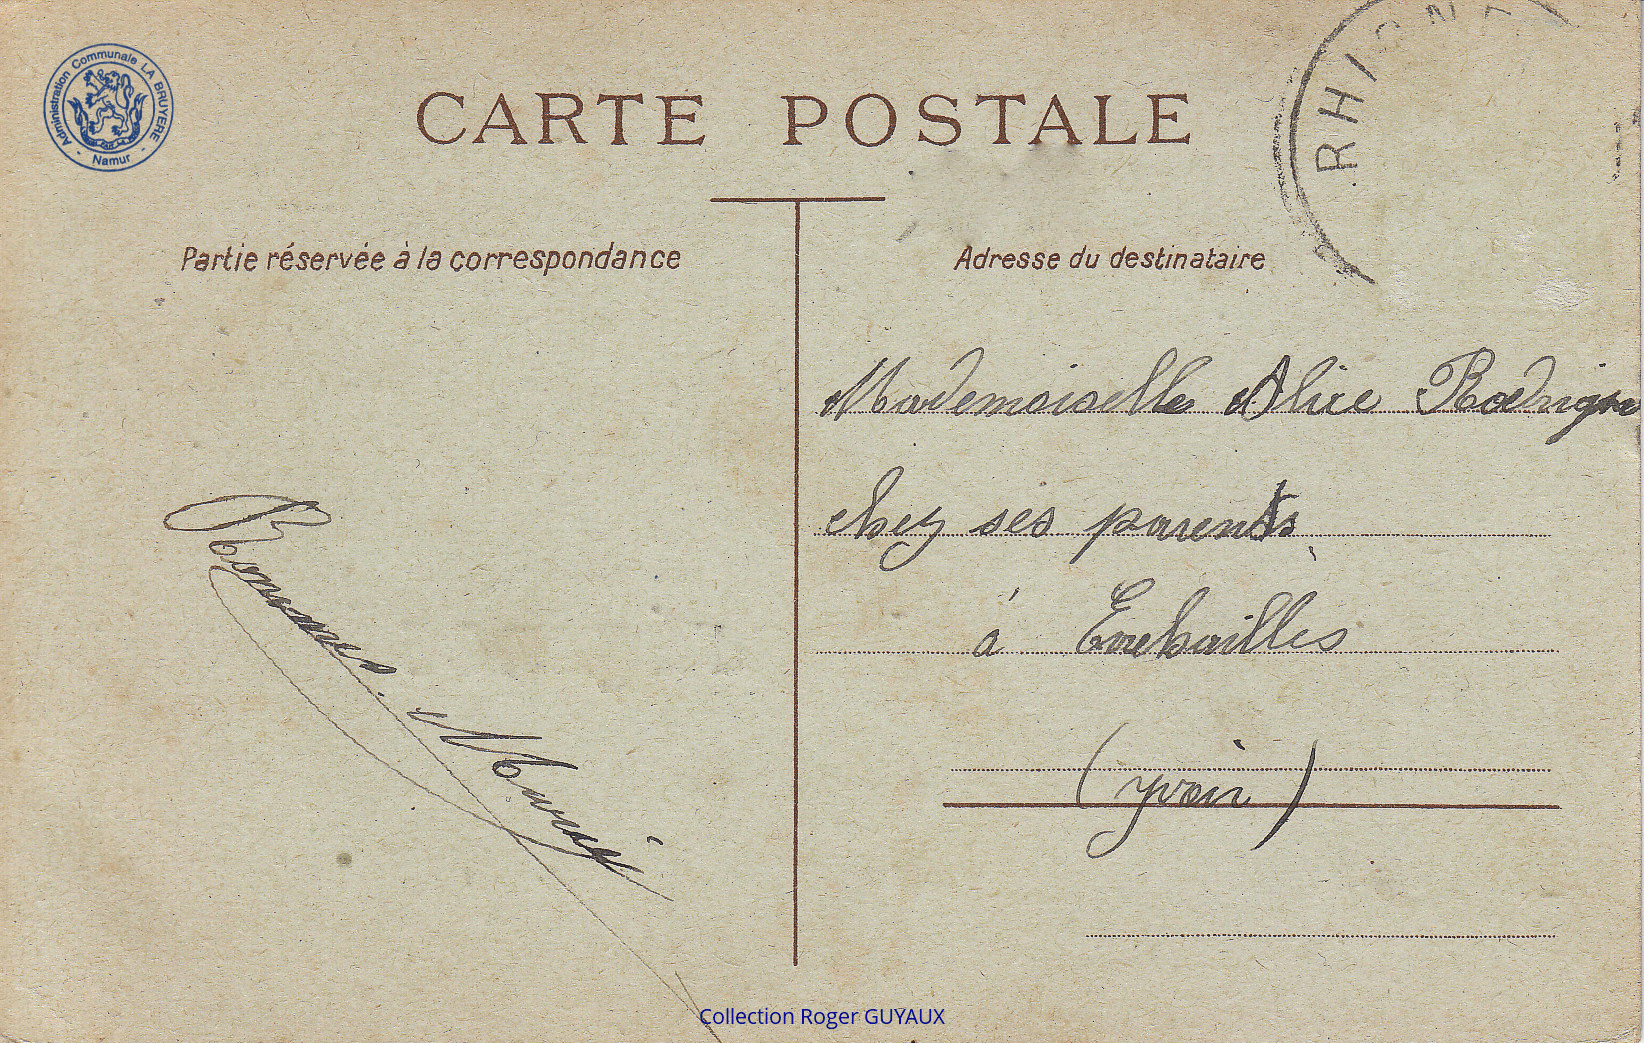 Administration Communale LA BRUYERE
- Namur -
CARTE POSTALE
RHISN
Partie réservée à la correspondance
Adresse du destinataire
Mademoiselle Alice
chez ses parents
à Evrehailles
(yvoir)
Marie
Collection Roger GUYAUX